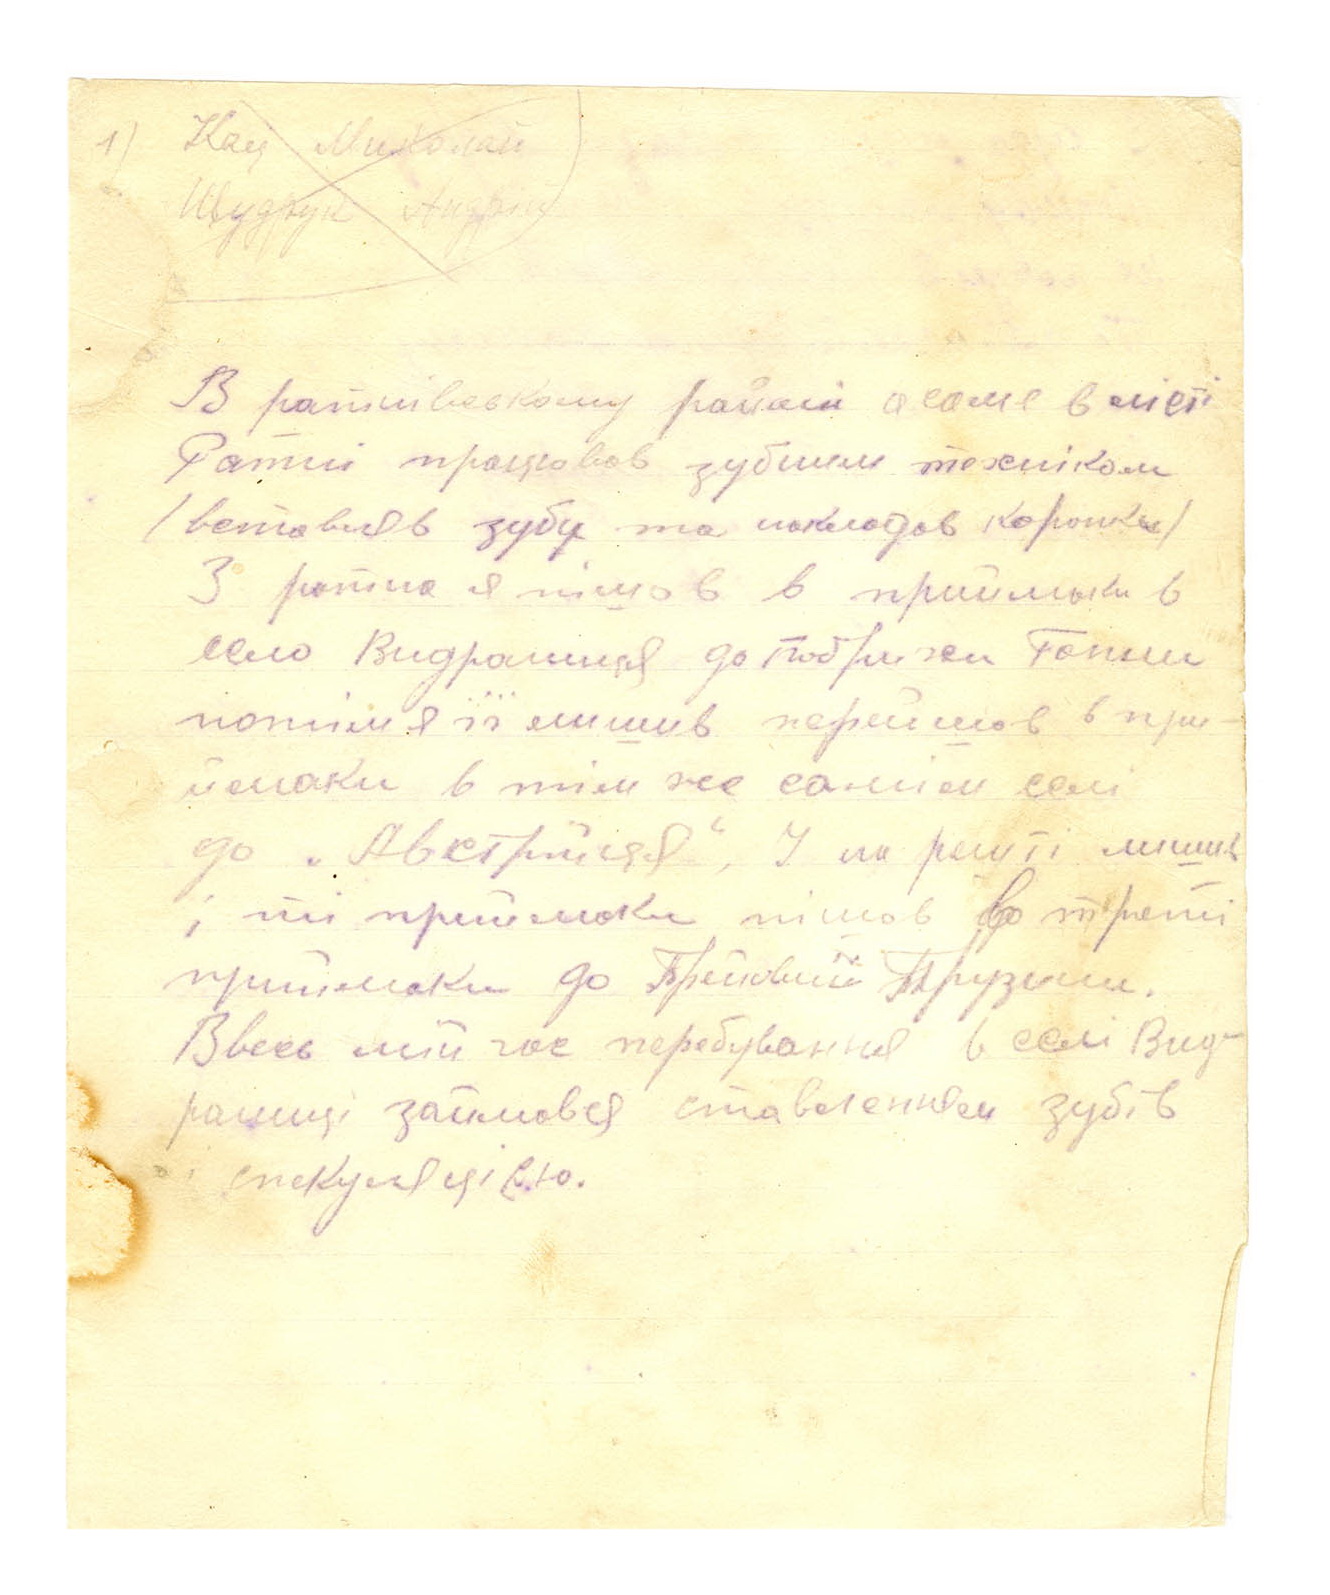 1) Кац Миколай
Шудрук Андрій
В ратнівському районі а саме в місті
Ратні працював зубним техніком
/вставляв зуби та накладав коронки/
З ратна я пішов в приймаки в
село Видраниця до Ганни
потім я її лишив перейшов в при-
ймаки в тім же самім селі
до „Австрійця“, І на решті лишив
і ті приймаки пішов во треті
приймаки до
Ввесь мій час перебування в селі Вид-
раниці займався ставленням зубів
і спекуляцією.